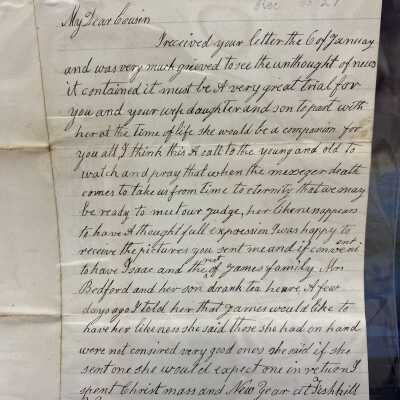 Rec 27
My Dear Cousin
I received your letter the 6 of January
and was very much grieved to see the unthought of news
it contained it must be A very great trial for
you and your wife daughter and son to part with
her at the time of life she would be a companion for
you all I think this A call to the young and old to
watch and pray that when the messeger death
comes to take us from time to eternity that we may
be ready to meet our Judge, her likeness appears
to have A thought full expression I was happy to
receive the pictures you sent me and if convenient
to have Isaac and the rest of James family Mrs
Bedford and her son drank tea heare A few
days ago I told her that James would like to
have her likeness she said those she had on hand
were not consired very good ones she said if she
sent one she would expect one in return I
spent Christmass and New Year at Fishkill